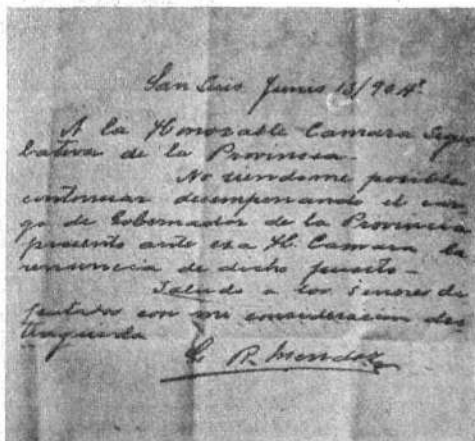 San Luis Junio 13/904.
A la Honorable Camara Legis
lativa de la Provincia.
No siendome posible
continuar desempeñando el car
go de Gobernador de la Provincia
presento ante esa H. Camara la
renuncia de dicho puesto -
Saludo a los señores di
putados con mi consideracion dis
tinguida
R. Mendoz